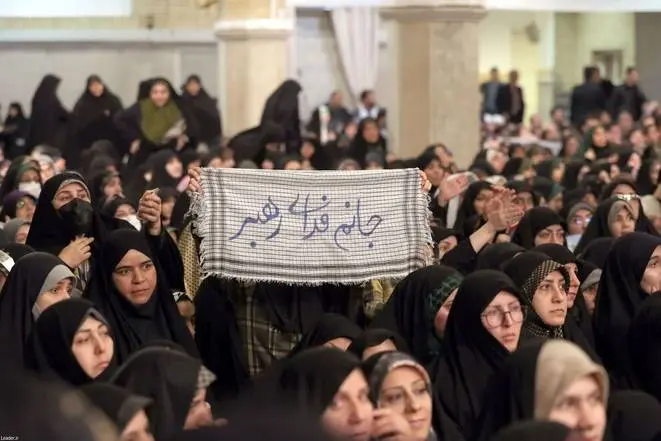 جانم فدای رهبر
Leader.ir